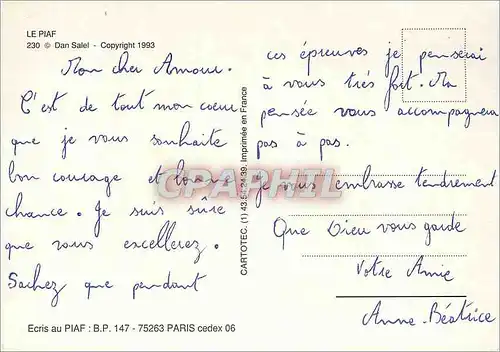 LE PIAF
230 © Dan Salel - Copyright 1993
Mon cher Amour.
C'est de tout mon coeur
que je vous souhaite
bon courage et bonne
chance. Je suis sûre
que vous excellerez.
Sachez que pendant
Ecris au PIAF : B.P. 147 - 75263 PARIS cedex 06
CARTOTEC. (1) 43.54.24.39. Imprimée en France
ces épreuves je penserai
à vous très fort. Ma
pensée vous accompagnera
pas à pas.
Je vous embrasse tendrement
Que Dieu vous garde
Votre Amie
Anne-Béatrice
CPARHIL.com